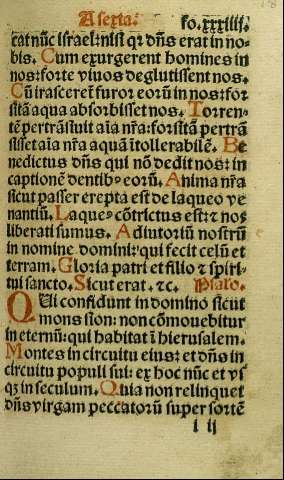 A sexta. fo. xxxiiij.
cat nūc israel: nisi qr dn̄s erat in no-
bis. Cum exurgerent homines in
nos: forte viuos deglutissent nos.
Cū irasceret̄ furor eorū in nos: for
sitā aqua absorbisset nos. Torren-
tē pertrāsiuit aīa nr̄a: forsitā pertrā
sisset aīa nr̄a aquā ītollerabilē. Be
nedictus dn̄s qui nō dedit nos: in
captionē dentibꝰ eorū. Anima nr̄a
sicut passer erepta est de laqueo ve
nantiū. Laqueꝰ cōtrictus est: ⁊ nos
liberati sumus. Adiutoriū nostrū
in nomine domini: qui fecit celū et
terram. Gloria patri et filio ⁊ spiri-
tui sancto. Sicut erat. ⁊c. Psalꝰ.
QUi confidunt in domino sicut
mons sion: non cōmouebitur
in eternū: qui habitat ī hierusalem.
Montes in circuitu eius: et dn̄s in
circuitu populi sui: ex hoc nūc et vs
qꝫ in seculum. Quia non relinquet
dn̄s virgam peccatorū super sortē
i ij